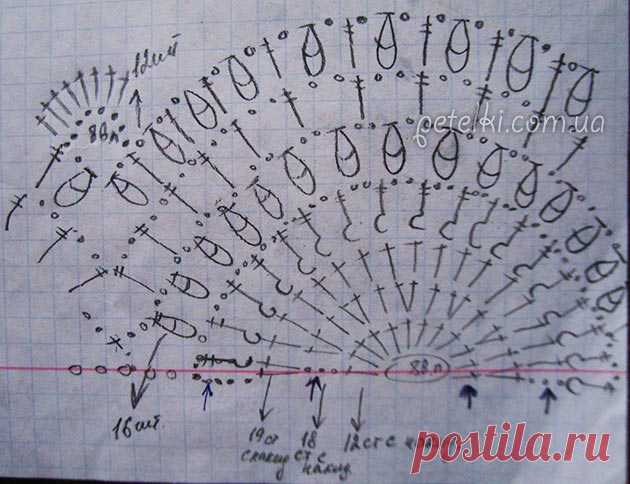 12шт
8вп
petelki.com.ua
8вп
16шт.
19ст
с накид
18
ст с
накид.
12ст с
postila.ru